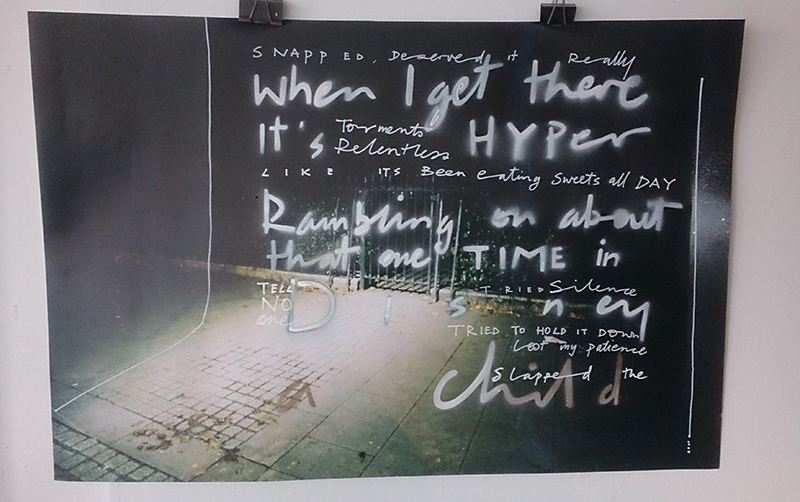 SNAPPED, Deserved it Really
When I get there
It's Torments HYPer
Relentless
LIKE ITS Been eating Sweets all DAY
Rambling on about
that one TIME in
TELL TRIED Silence
NO Disney
one
TRIED TO HOLD IT Down
Lost my patience
Slapped the
a child